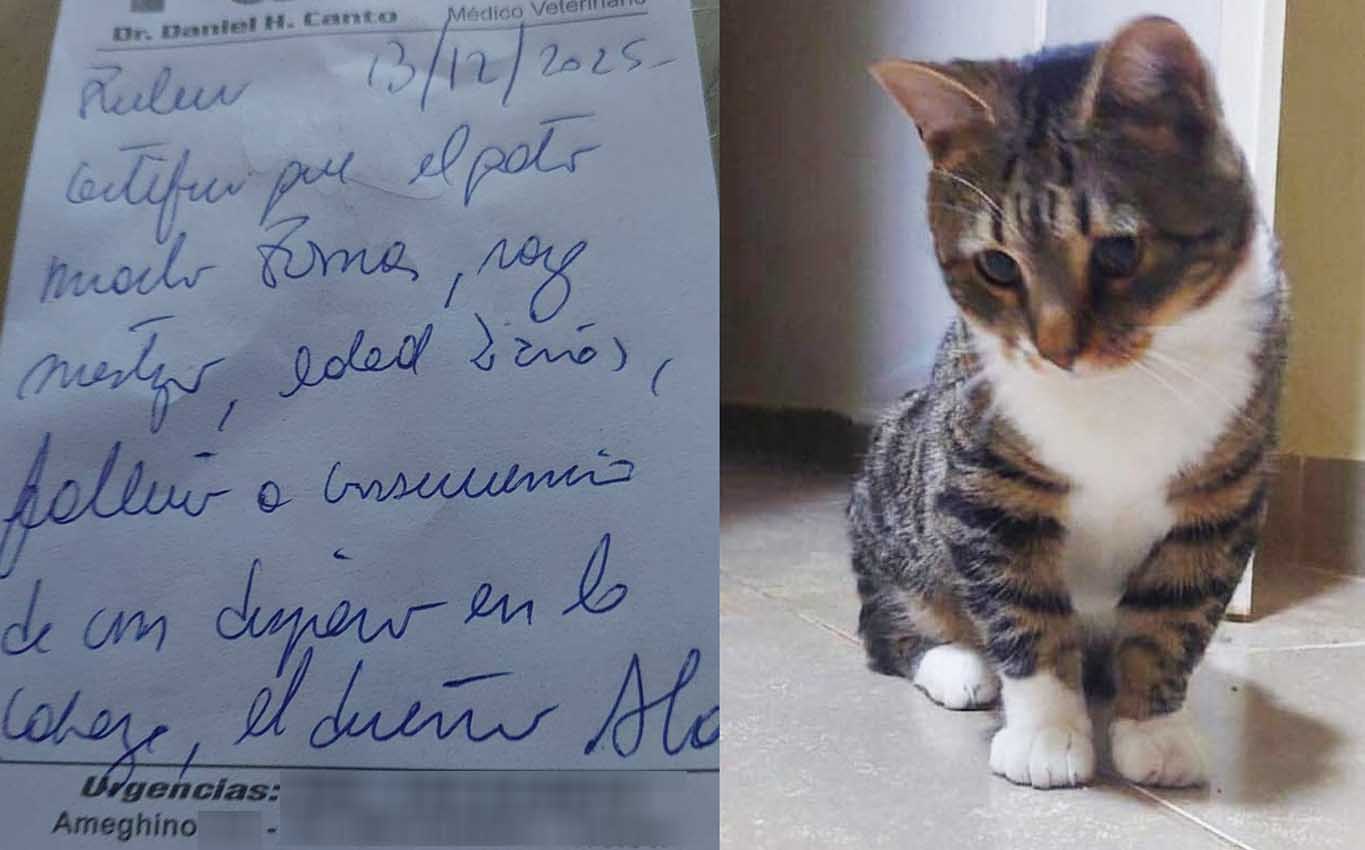 Dr. Daniel H. Canto Médico Veterinario
13/12/2025-
certifico que el gato
macho Tomas, raza
mestizo, edad 2 años,
falleció a consecuencia
de un disparo en la
cabeza, el dueño Alo
Urgencias:
Ameghino -